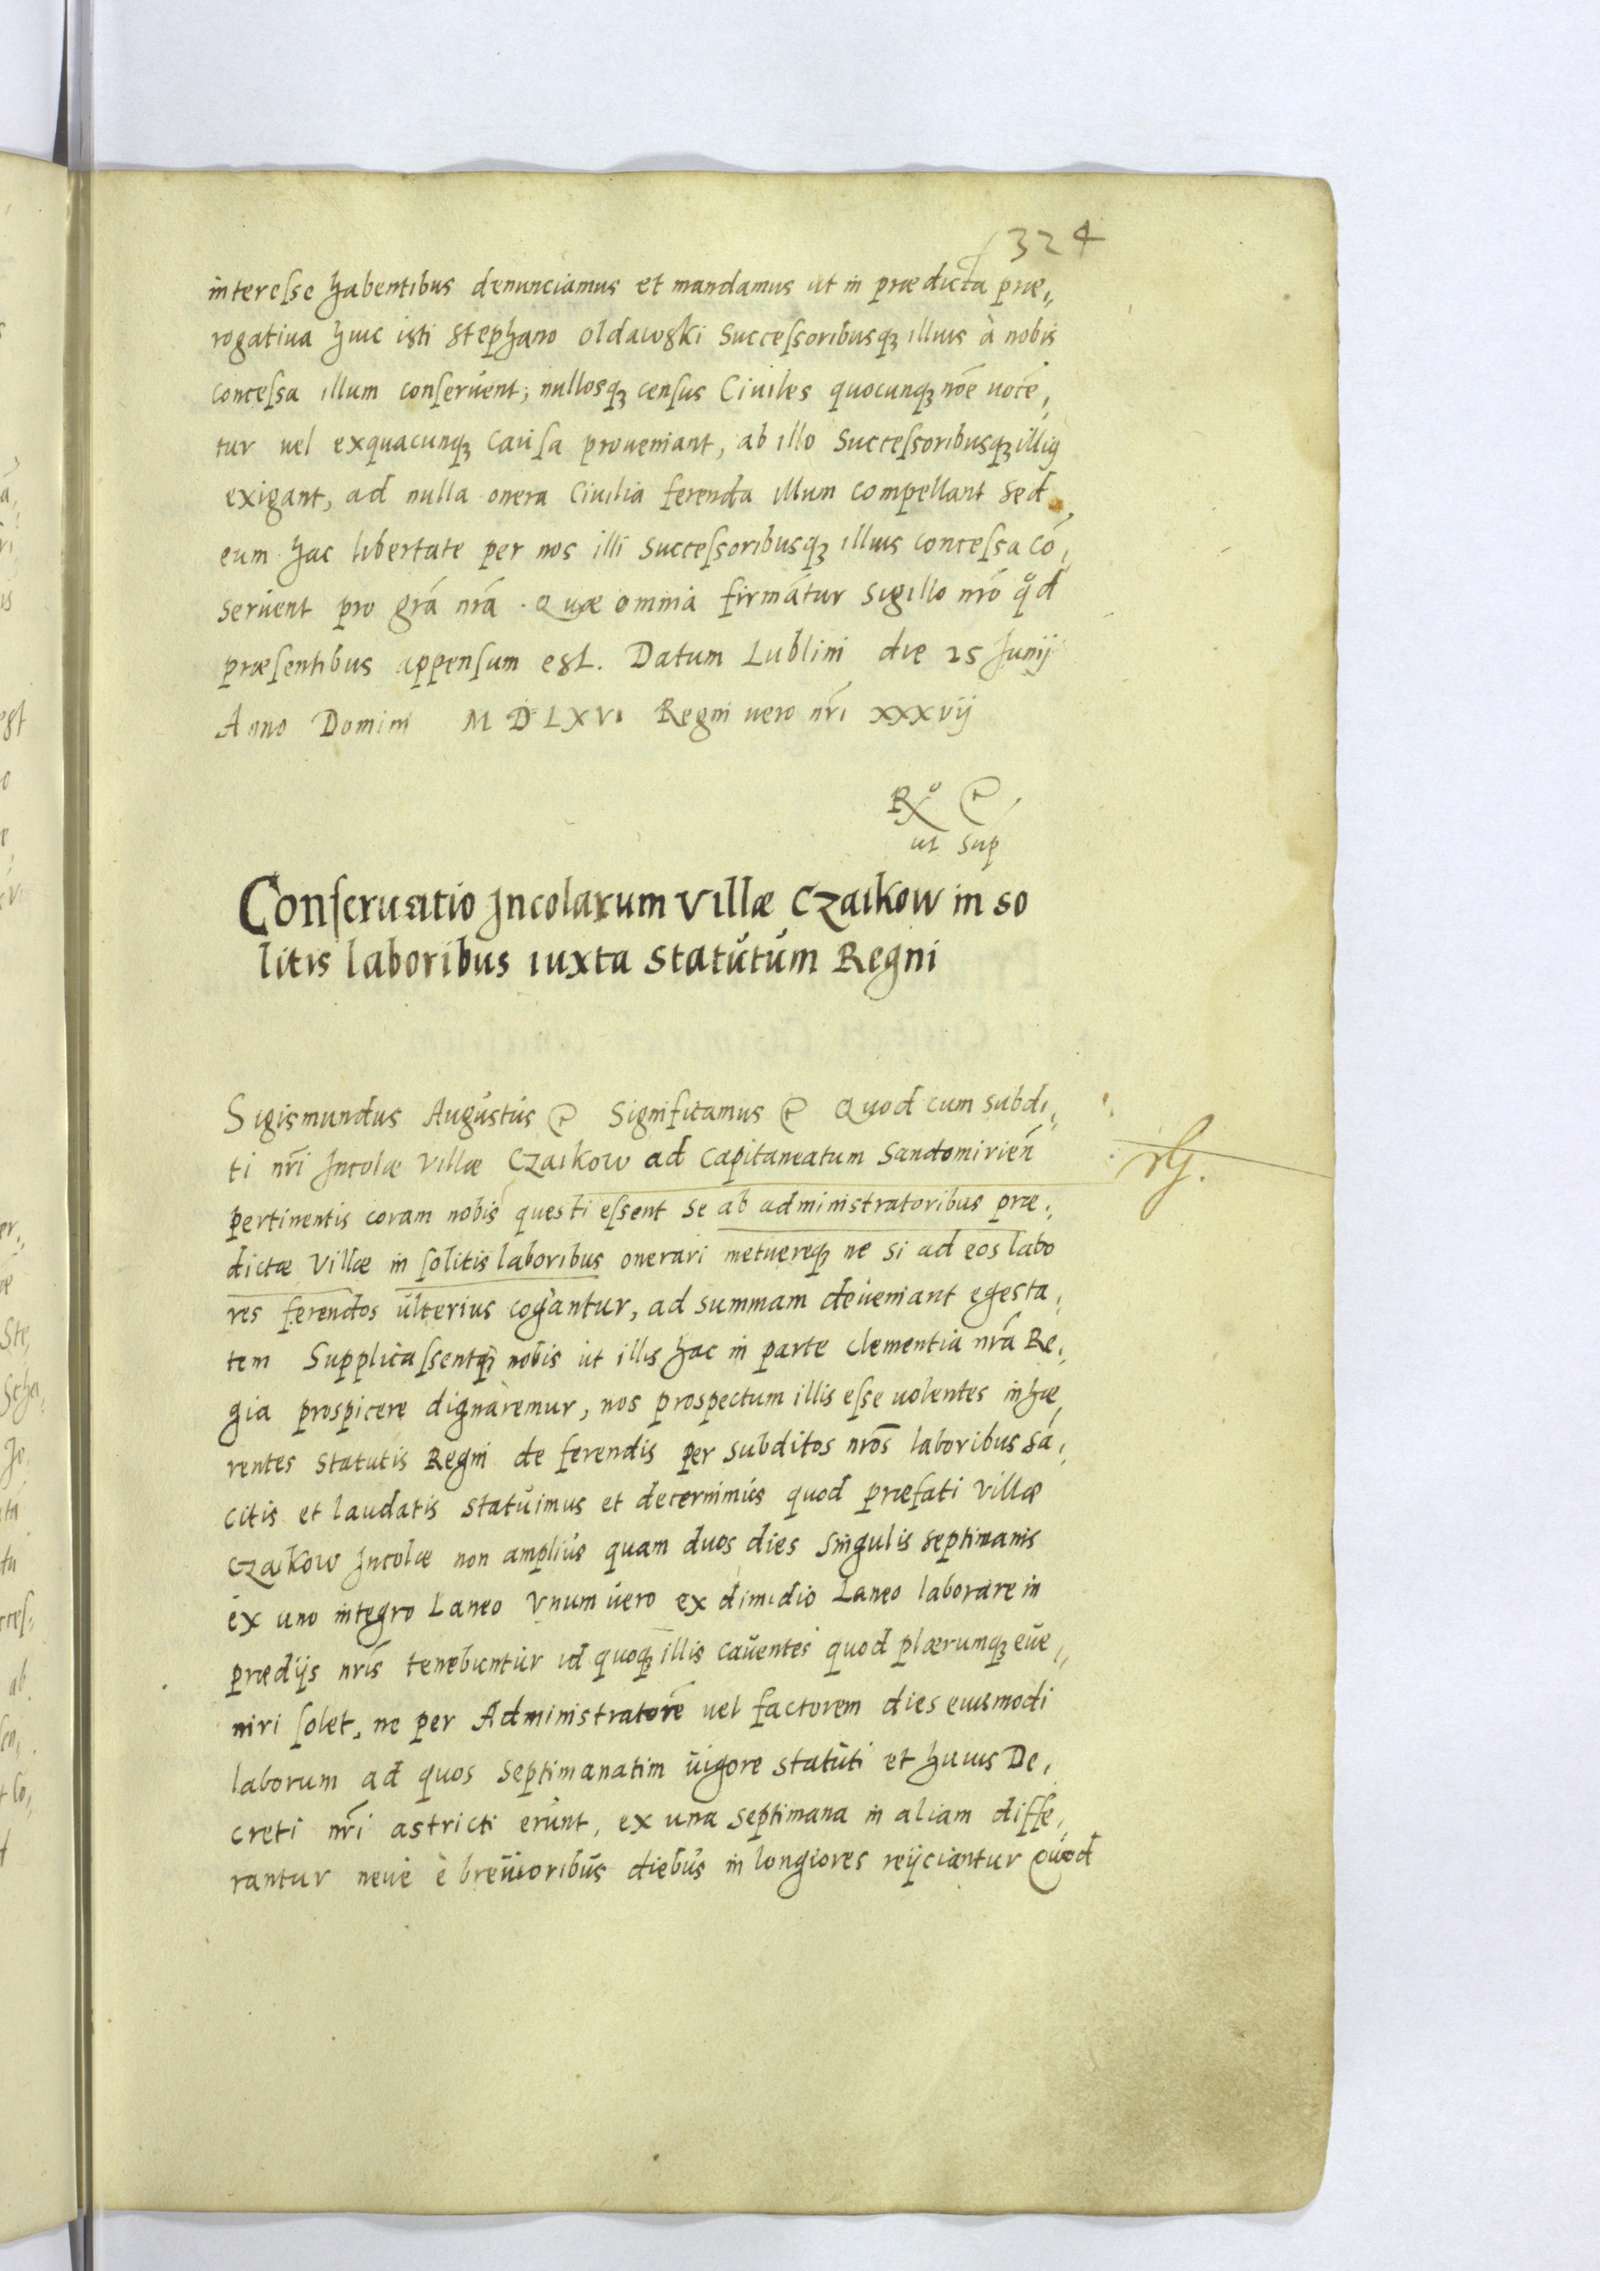 324
interesse habentibus denunciamus et mandamus ut in prædicta præ,,
rogatiua huic isti Stephano Oldawski Successoribusq3 illius à nobis
concessa illum conseruent; nullosq3 census Ciuiles quocunq3 nōē uocē,
tur uel exquacunq3 causa proueniant, ab illo Successoribusq3 illiꝰ
exigant, ad nulla onera Ciuilia ferenda illum compellant Sed
eum hac libertate per nos illi Successoribusq3 illius concessa cō,
seruent pro grā nrā. Quæ omnia firmātur Sigillo nrō qͦd
præsentibus appensum est. Datum Lublini die 25 Junij
Anno Domini MDLXVI Regni uero nrī xxxvij
ut sup
Conseruatio Jncolarum Villæ Czaikow in so
litis laboribus iuxta Statutum Regni
Sigismundus Augustus &c Significamus &c Quod cum subdi,,
ti nrī Jncolæ Villæ Czaikow ad Capitaneatum Sandomirieñ
pertinentis coram nobis questi essent se ab administratoribus præ,
dictæ Villæ in solitis laboribus onerari metuereq3 ne si ad eos labo
res ferendos ulterius cogantur, ad summam deueniant egesta,
tem Supplicassentq3 nobis ut illis hac in parte clementia nrā Re,
gia prospicere dignaremur, nos prospectum illis esse uolentes inhæ,
rentes Statutis Regni de ferendis per subditos nrōs laboribus sā,
citis et laudatis statuimus et decernimus quod præfati Villæ
Czaikow Jncolæ non amplius quam duos dies singulis septimanis
ex uno integro Laneo Vnum uero ex dimidio Laneo laborare in
prædijs nrīs tenebuntur id quoq3 illis cauentes quod plærumq3 eue,,
niri solet, ne per Administratorē uel factorem dies eiusmodi
laborum ad quos septimanatim uigore statuti et huius De,
creti nrī astricti erunt, ex una septimana in aliam diffe,
rantur neue è breuioribus diebus in longiores reijciantur Quod